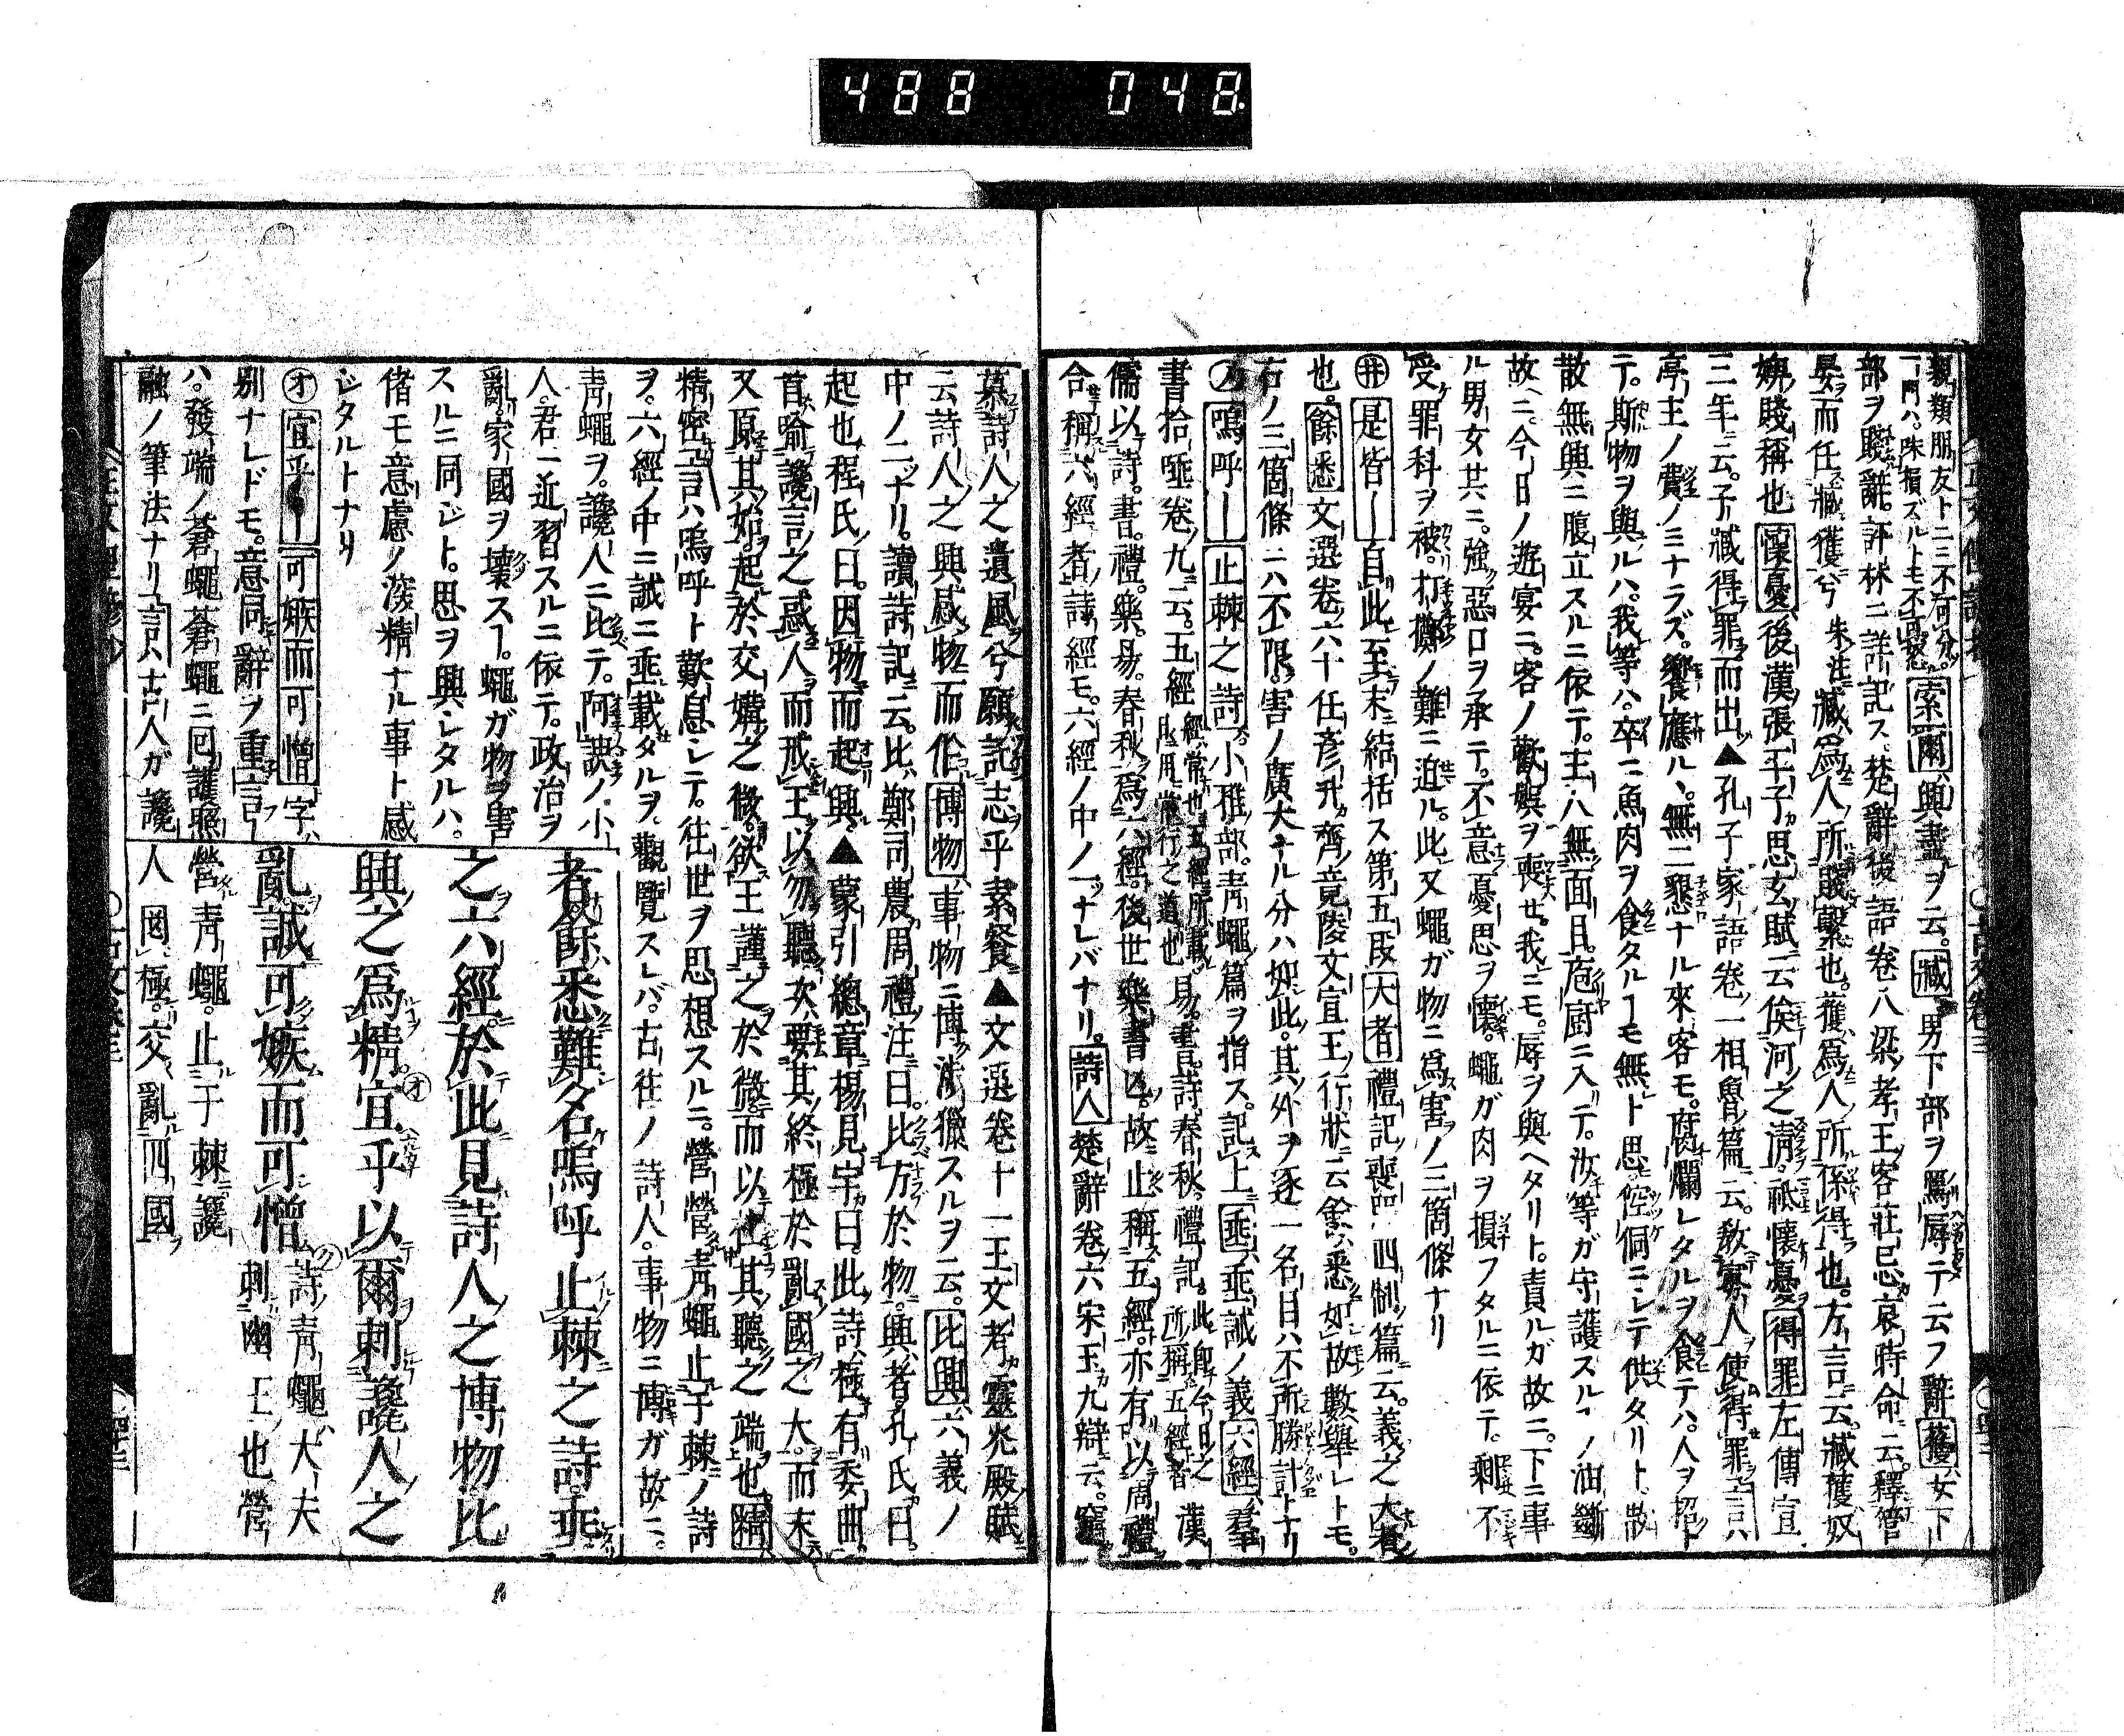 488 048
親類朋友ト二三不可分。索爾興盡ヲ云。臧男下部ヲ罵辱テ云フ辭獲女下
一門ハ。殊損ズルトモ不可怒
部ヲ賤辭。評林ニ詳記ス楚辭後語卷八梁孝王客莊忌哀時命云。釋管
晏而任臧獲兮朱注臧爲人所賤繋也。獲爲人所係得也。方言云。臧獲奴
婢賤稱也懷憂後漢張平子思玄賦云俟河之清祇懷憂得罪左傳宣
三年云。子臧得罪而出▲孔子家語卷一相魯篇云。敎寡人使得罪言ハ
亭主ノ費ノミナラズ。饗應ル、無二懇ナル來客モ。腐爛レタルヲ食テハ。人ヲ招
テ。斯物ヲ與ルハ。我等ハ。卒ニ魚肉ヲ食タルコモ無ト思。倥侗ニシテ供タリト
散無興ニ腹立スルニ依テ。主ハ無面目。庖厨ニ入テ。汝等ガ守護スルノ油斷
故ニ。今日ノ遊宴ニ。客ノ歡娯ヲ喪セ。我ニモ。辱ヲ與ヘタリト。責ルガ故ニ。下ニ事
ル男女共ニ。強惡口ヲ承テ。不意憂思ヲ懷。蠅ガ肉ヲ損フタルニ依テ。剩不
受罪科ヲ被。打擲ノ難ニ迫ル。此又蠅ガ物ニ爲害ノ三箇條ナリ
㊉是皆ー自此至末結括ス第五段大者禮記喪服四制篇云。義之大者
也。餘悉文選卷六十任彦升齊竟陵文宣王行狀云餘悉如故數擧レトモ。
右ノ三箇條ニハ不限。害ノ廣大ナル分ハ如此。其外ヲ逐一名目ハ不所勝計トナリ
嗚呼ー止棘之詩小雅部。青蠅篇ヲ指ス。記上垂垂誡ノ義六經羣
書拾唾卷九云。五經經常也五經所載即用常行之道也易。書。詩春秋。禮記。此自今日之所稱五經者漢
儒以詩。書。禮。樂。易。春秋爲六經。後世樂書亡。故止稱五經。亦有以周禮
合稱六經者詩經モ。六經ノ中ノ一ツナレバナリ。詩人楚辭卷六宋玉九辯云。竊
慕詩人之遺風兮願託志乎素餐▲文選卷十一王文考靈光殿賦
云詩人之興感物而作博物事物ニ博渉獵スルヲ云。比興六義ノ
中ノ二ツナリ。讀詩記云。比鄭司農周禮注曰。比方於物。興者孔氏曰。
起也程氏曰。因物而起興。▲蒙引總章楊見宇曰此詩極有委曲。
首喩讒言之惑人而戒王以勿聽次要其終極於亂國之大。而末
又原其始起於交媾之微。欲王謹之於微而以杜其聽之端也精
精密言ハ嗚呼ト歎息シテ。往世ヲ思想スルニ。營營青蠅止于棘ノ詩
ヲ。六經ノ中ニ誠ニ垂載タルヲ。觀覽スレバ。古往ノ詩人。事物ニ博ガ故ニ。
青蠅ヲ。讒人ニ比テ。阿諛ノ小
人。君ニ近習スルニ依テ。政治ヲ
亂。家國ヲ壞スコ。蠅ガ物ヲ害
スルニ同ジト。思ヲ興シタルハ。
偖モ意慮ノ深精ナル事ト感
ジタルトナリ
㋔宜乎ー可嫉而可憎字
別ナレドモ。意同辭ヲ重言
ハ。發端ノ蒼蠅蒼蠅ニ回護照
融ノ筆法ナリ言ハ古人ガ讒
者餘悉難名嗚呼止棘之詩垂
之六經於此見詩人之博物比
興之爲精㋔宜乎以爾刺讒人之
亂誠可嫉而可憎㋗詩青蠅大夫
刺幽王也營
營青蠅。止于棘讒
人罔極。交亂四國